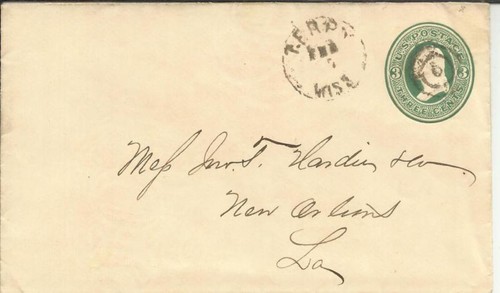 TERRY
MISS
U.S. POSTAGE
3 3
THREE CENTS
Mess Jno. T. Hardie & Co.
New Orleans
La